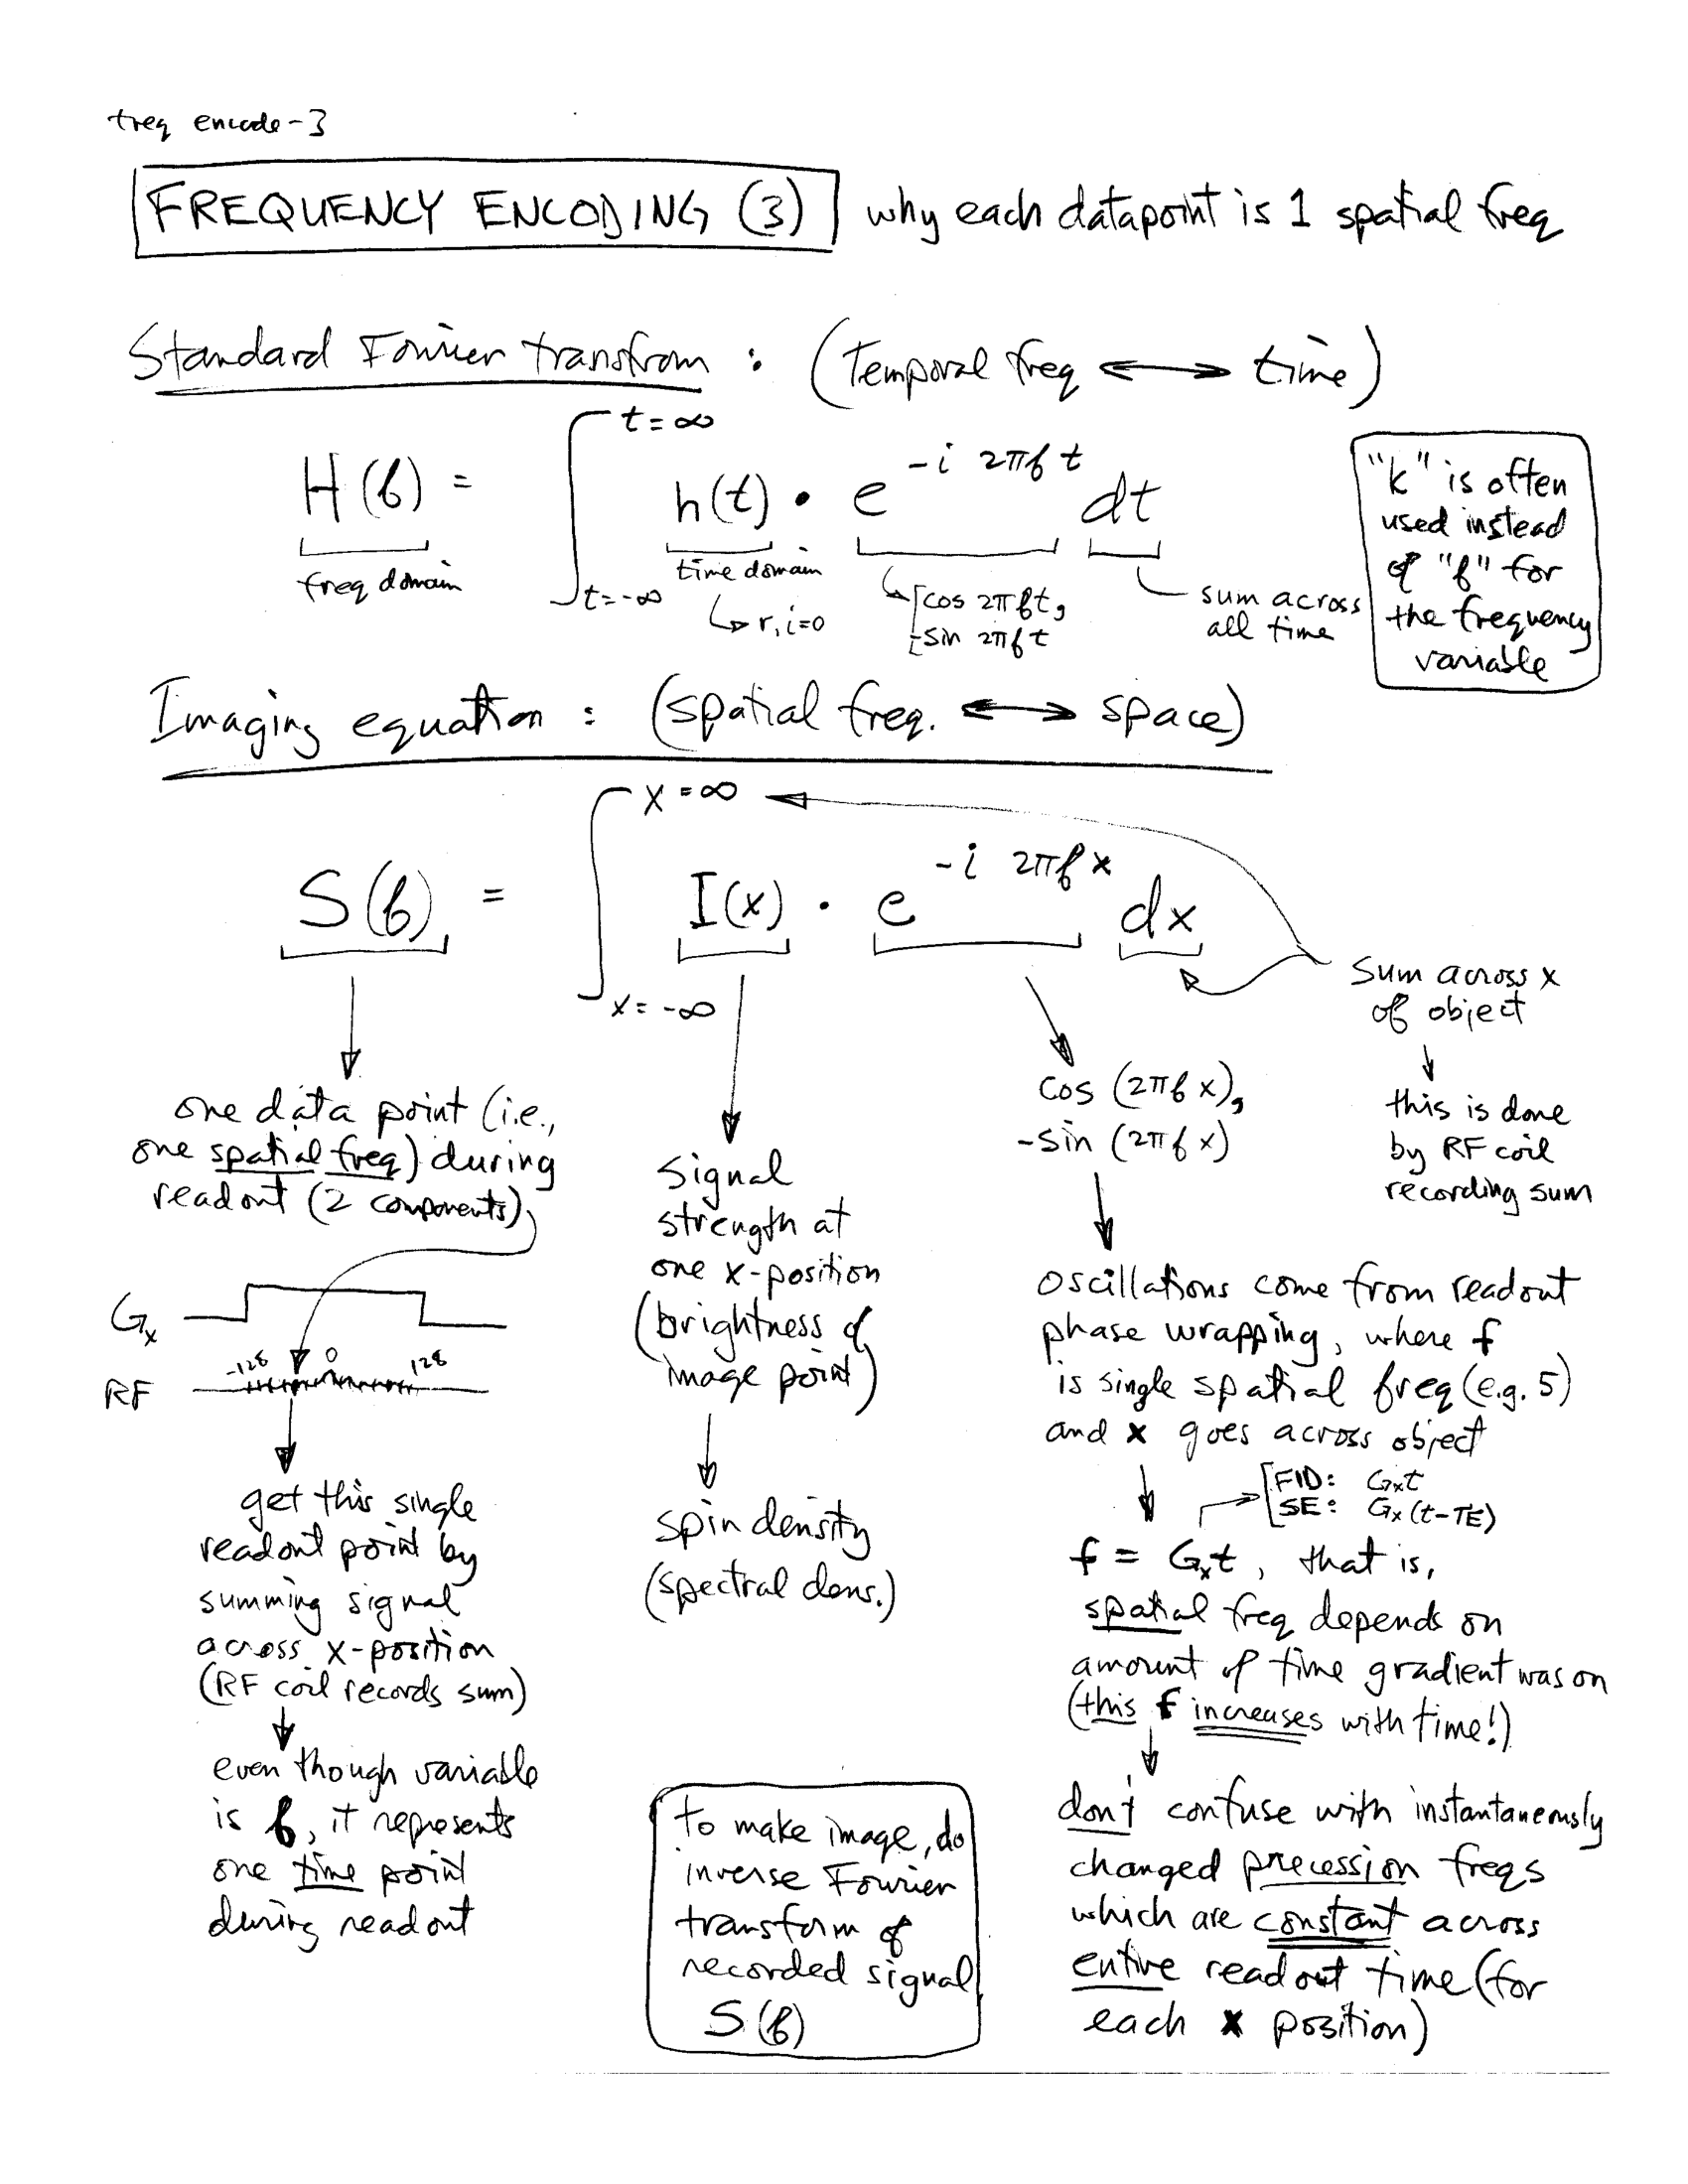 freq encode-3
FREQUENCY ENCODING (3) why each datapoint is 1 spatial freq
Standard Fourier transfrom : (Temporal freq ⟷ time)
t=∞
H(f) = ∫ h(t) • e^{-i 2πf t} dt
t=-∞
freq domain
time domain
r, i=0
cos 2πft,
-sin 2πft
sum across
all time
"k" is often
used instead
of "f" for
the frequency
variable
Imaging equation : (spatial freq. ⟷ space)
x=∞
S(f) = ∫ I(x) • e^{-i 2πf x} dx
x=-∞
sum across x
of object
this is done
by RF coil
recording sum
one data point (i.e.,
one spatial freq) during
readout (2 components)
Gx
-128 0 128
RF
get this single
readout point by
summing signal
across x-position
(RF coil records sum)
even though variable
is f, it represents
one time point
during readout
signal
strength at
one x-position
(brightness of
image point)
spin density
(spectral dens.)
to make image, do
inverse Fourier
transform of
recorded signal
S(f)
cos (2πf x),
-sin (2πf x)
oscillations come from readout
phase wrapping, where f
is single spatial freq (e.g. 5)
and x goes across object
FID: Gxt
SE: Gx(t-TE)
f = Gxt, that is,
spatial freq depends on
amount of time gradient was on
(this f increases with time!)
don't confuse with instantaneously
changed precession freqs
which are constant across
entire readout time (for
each x position)